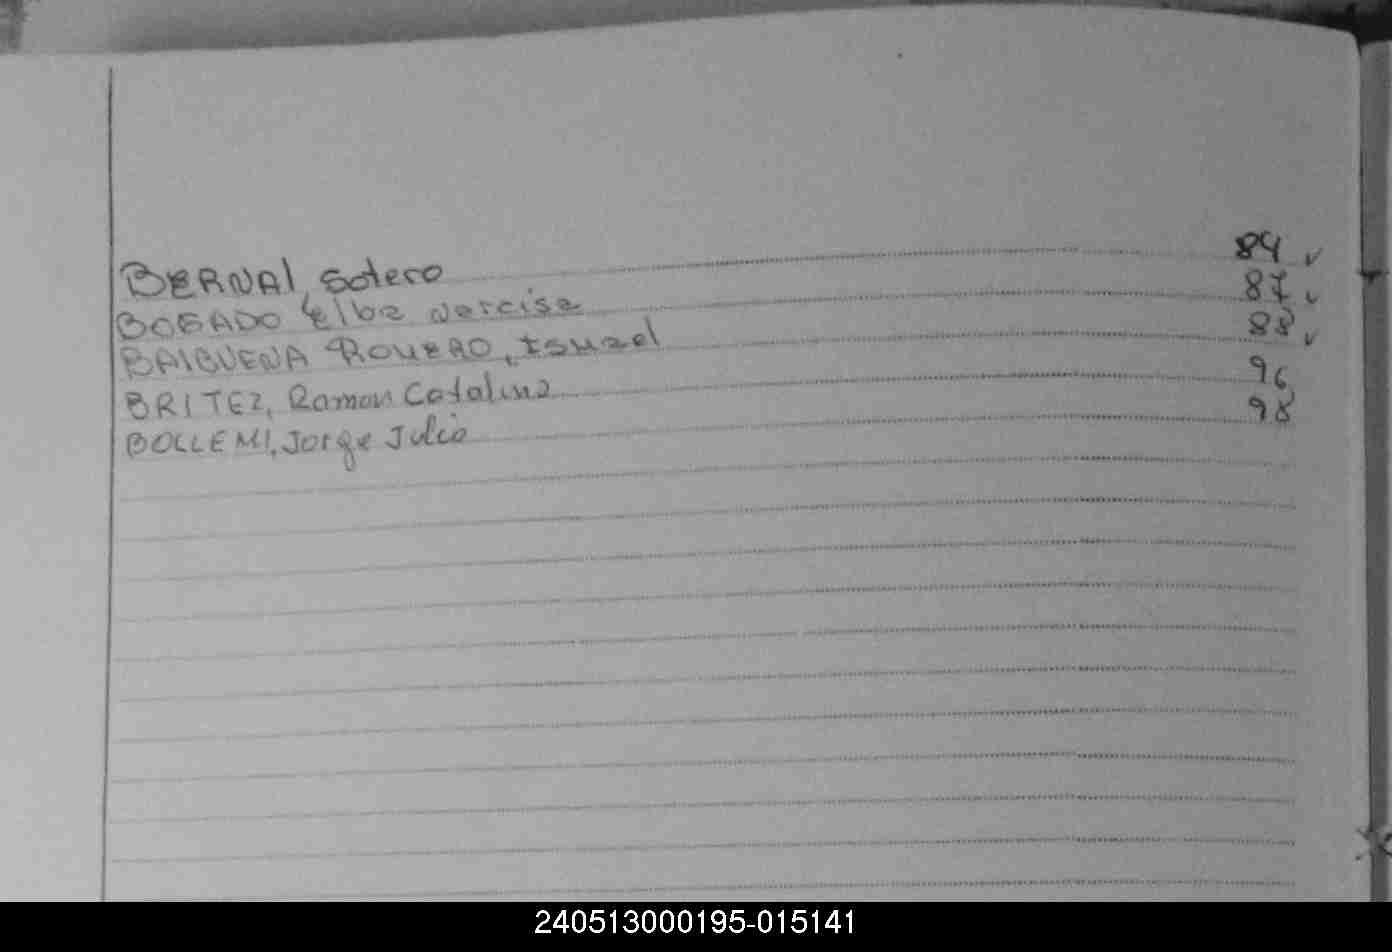 BERNAl Sotero 84 ✓
BOGADO Elba Narcisa 87 ✓
BAIBUENA ROMERO, Ismael 88 ✓
BRITEZ, Ramon Catalino 96
BOLLEMI, Jorge Julio 98
240513000195-015141